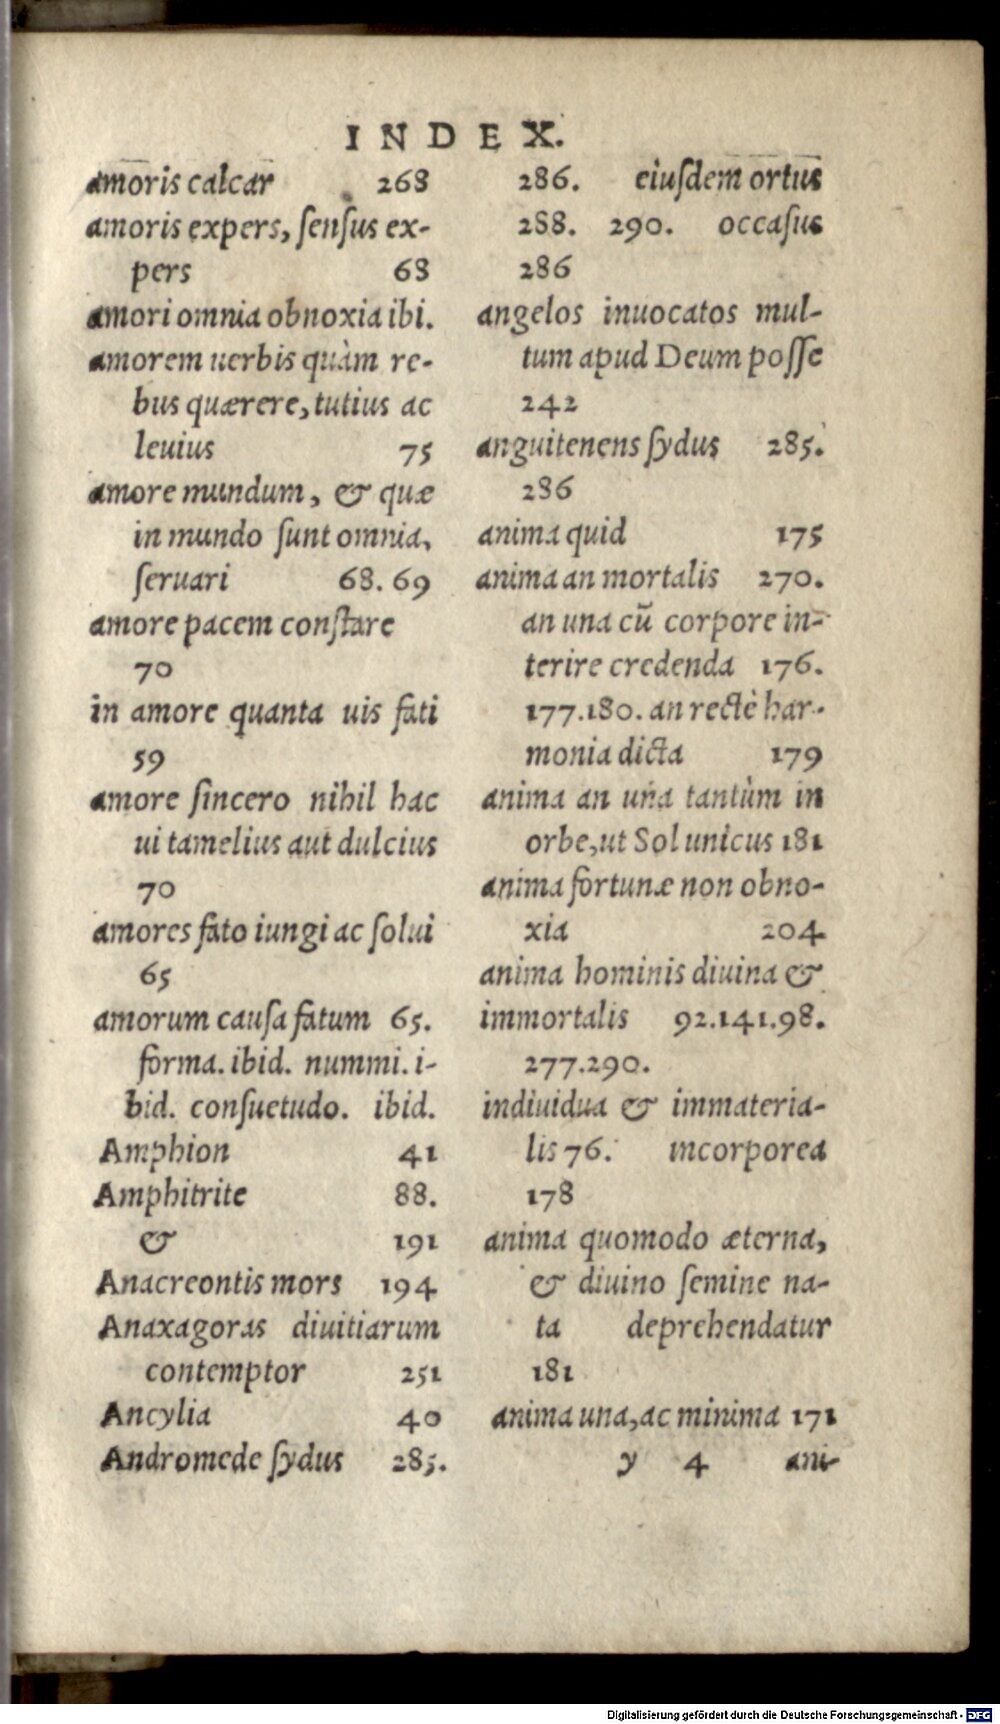 INDEX.
amoris calcar 268
amoris expers, ſenſus ex-
pers 68
amori omnia obnoxia ibi.
amorem uerbis quàm re-
bus quærere, tutius ac
leuius 75
amore mundum, & quæ
in mundo ſunt omnia,
ſeruari 68. 69
amore pacem conſtare
70
in amore quanta uis fati
59
amore ſincero nihil hac
ui tamelius aut dulcius
70
amores fato iungi ac ſolui
65
amorum cauſa fatum 65.
forma. ibid. nummi. i-
bid. conſuetudo. ibid.
Amphion 41
Amphitrite 88.
& 191
Anacreontis mors 194
Anaxagoras diuitiarum
contemptor 251
Ancylia 40
Andromede ſydus 285.
286. eiuſdem ortus
288. 290. occaſus
286
angelos inuocatos mul-
tum apud Deum poſſe
242
anguitenens ſydus 285.
286
anima quid 175
anima an mortalis 270.
an una cū corpore in-
terire credenda 176.
177.180. an rectè har-
monia dicta 179
anima an una tantùm in
orbe, ut Sol unicus 181
anima fortunæ non obno-
xia 204
anima hominis diuina &
immortalis 92.141.98.
277.290.
indiuidua & immateria-
lis 76. incorporea
178
anima quomodo æterna,
& diuino ſemine na-
ta deprehendatur
181
anima una, ac minima 171
y 4 ani-
Digitalisierung gefördert durch die Deutsche Forschungsgemeinschaft - DFG